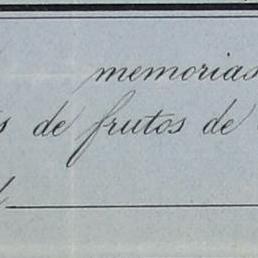 memorias
de frutos de